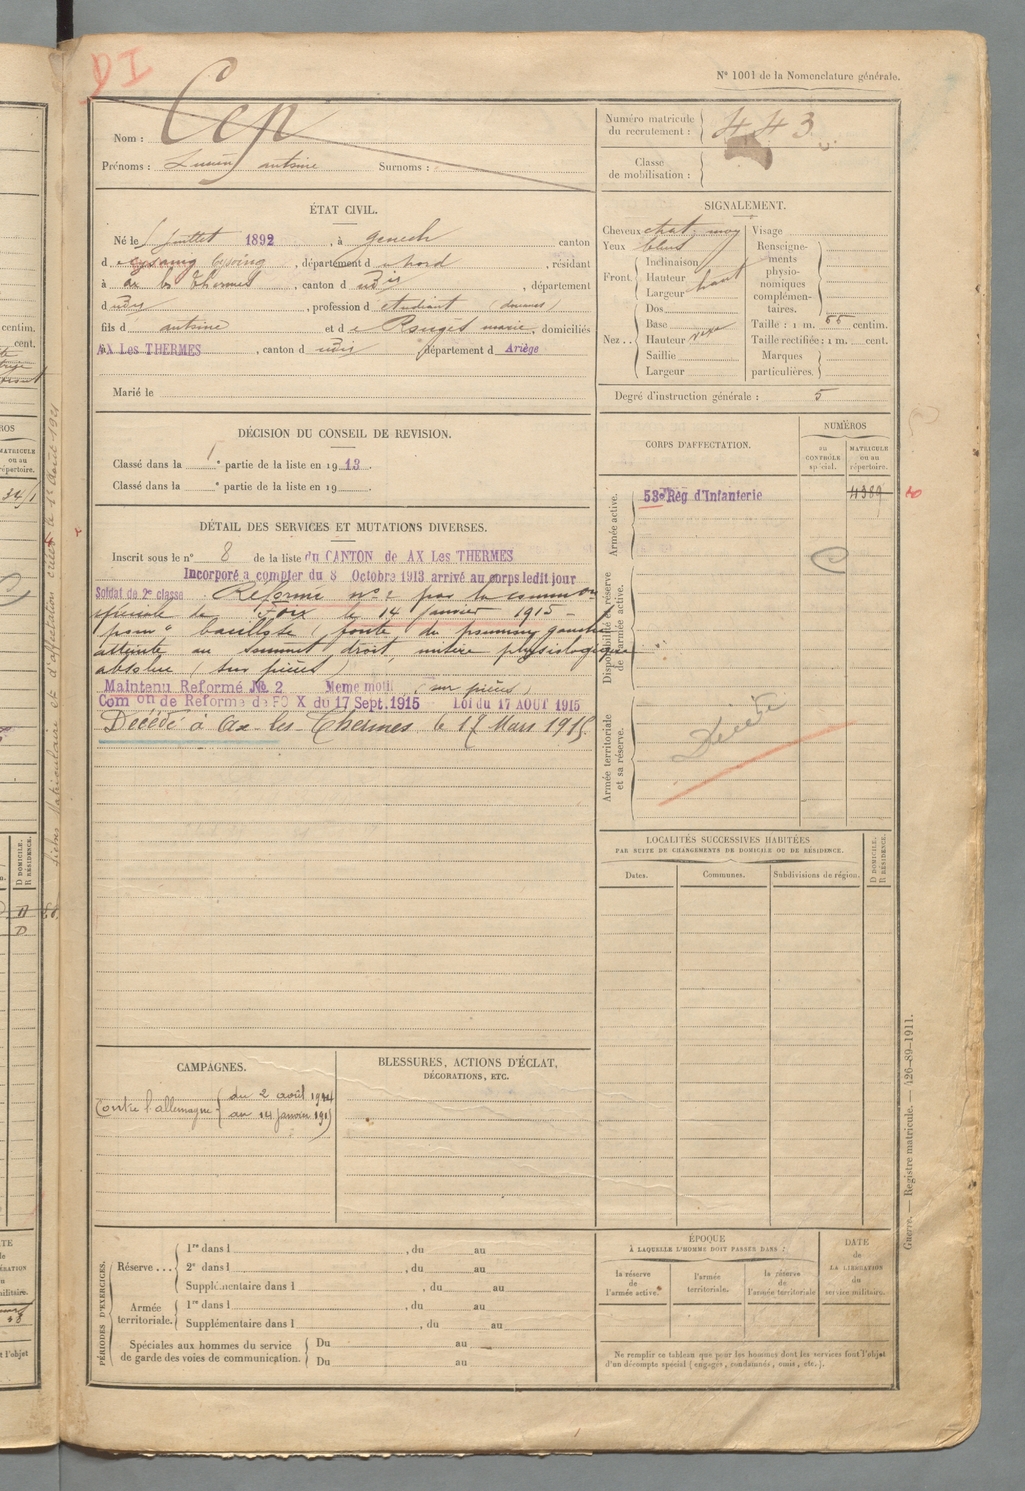 DI
N° 1001 de la Nomenclature générale.
Nom : Cep
Prénoms : Lucien antoine Surnoms :
Numéro matricule du recrutement : 443
Classe de mobilisation :
ÉTAT CIVIL.
Né le juillet 1892, à genech canton
d cysoing, département d u Nord, résidant
à ax les Thermes, canton d udit, département
d udit, profession d etudiant (douanes)
fils d antoine et d e Rougès marie, domiciliés
à AX Les THERMES, canton d udit département d Ariège
Marié le
SIGNALEMENT.
Cheveux chat. moy
Yeux bleus
Front. Inclinaison
Hauteur haut
Largeur
Nez.. Dos
Base
Hauteur
Saillie
Largeur
Visage
Renseignements physionomiques complémentaires.
Taille : 1 m. 66 centim.
Taille rectifiée : 1 m. cent.
Marques particulières.
Degré d'instruction générale : 5
DÉCISION DU CONSEIL DE REVISION.
Classé dans la 1e partie de la liste en 1913.
Classé dans la e partie de la liste en 19
CORPS D'AFFECTATION.
NUMÉROS
au CONTRÔLE spécial.
MATRICULE ou au répertoire.
Armée active.
53e Rég d'Infanterie
4389
C
Disponibilité et réserve de l'armée active.
Armée territoriale et sa réserve.
Décédé
DÉTAIL DES SERVICES ET MUTATIONS DIVERSES.
Inscrit sous le n° 8 de la liste du CANTON de AX Les THERMES
Incorporé a compter du 8 Octobre 1913 arrivé au corps ledit jour
Soldat de 2e classe Réforme n° 2 par la common
spéciale de Foix le 14 janvier 1915 -
pour " bacillose (fonte du poumon gauche
atteinte au sommet droit, misère physiologique
absolue (sur pièces)
Maintenu Reformé № 2 Meme motif (sur pièces)
Com on de Reforme de FO X du 17 Sept. 1915 Loi du 17 AOUT 1915
Décédé à Ax-les-Thermes le 17 Mars 1915.
LOCALITÉS SUCCESSIVES HABITÉES
PAR SUITE DE CHANGEMENTS DE DOMICILE OU DE RÉSIDENCE.
Dates.
Communes.
Subdivisions de région.
D DOMICILE.
R RÉSIDENCE.
CAMPAGNES.
Contre l'allemagne du 2 août 1914
au 14 janvier 1915
BLESSURES, ACTIONS D'ÉCLAT,
DÉCORATIONS, ETC.
PÉRIODES D'EXERCICES.
Réserve... 1re dans l , du au
2e dans l , du au
Supplémentaire dans l , du au
Armée territoriale. 1re dans l , du au
Supplémentaire dans l , du au
Spéciales aux hommes du service de garde des voies de communication. Du au
Du au
ÉPOQUE
À LAQUELLE L'HOMME DOIT PASSER DANS :
la réserve de l'armée active.
l'armée territoriale.
la réserve de l'armée territoriale
DATE de LA LIBÉRATION du service militaire.
Ne remplir ce tableau que pour les hommes dont les services font l'objet
d'un décompte spécial (engagés, condamnés, omis, etc.).
Guerre. — Registre matricule. — 426-89-1911.